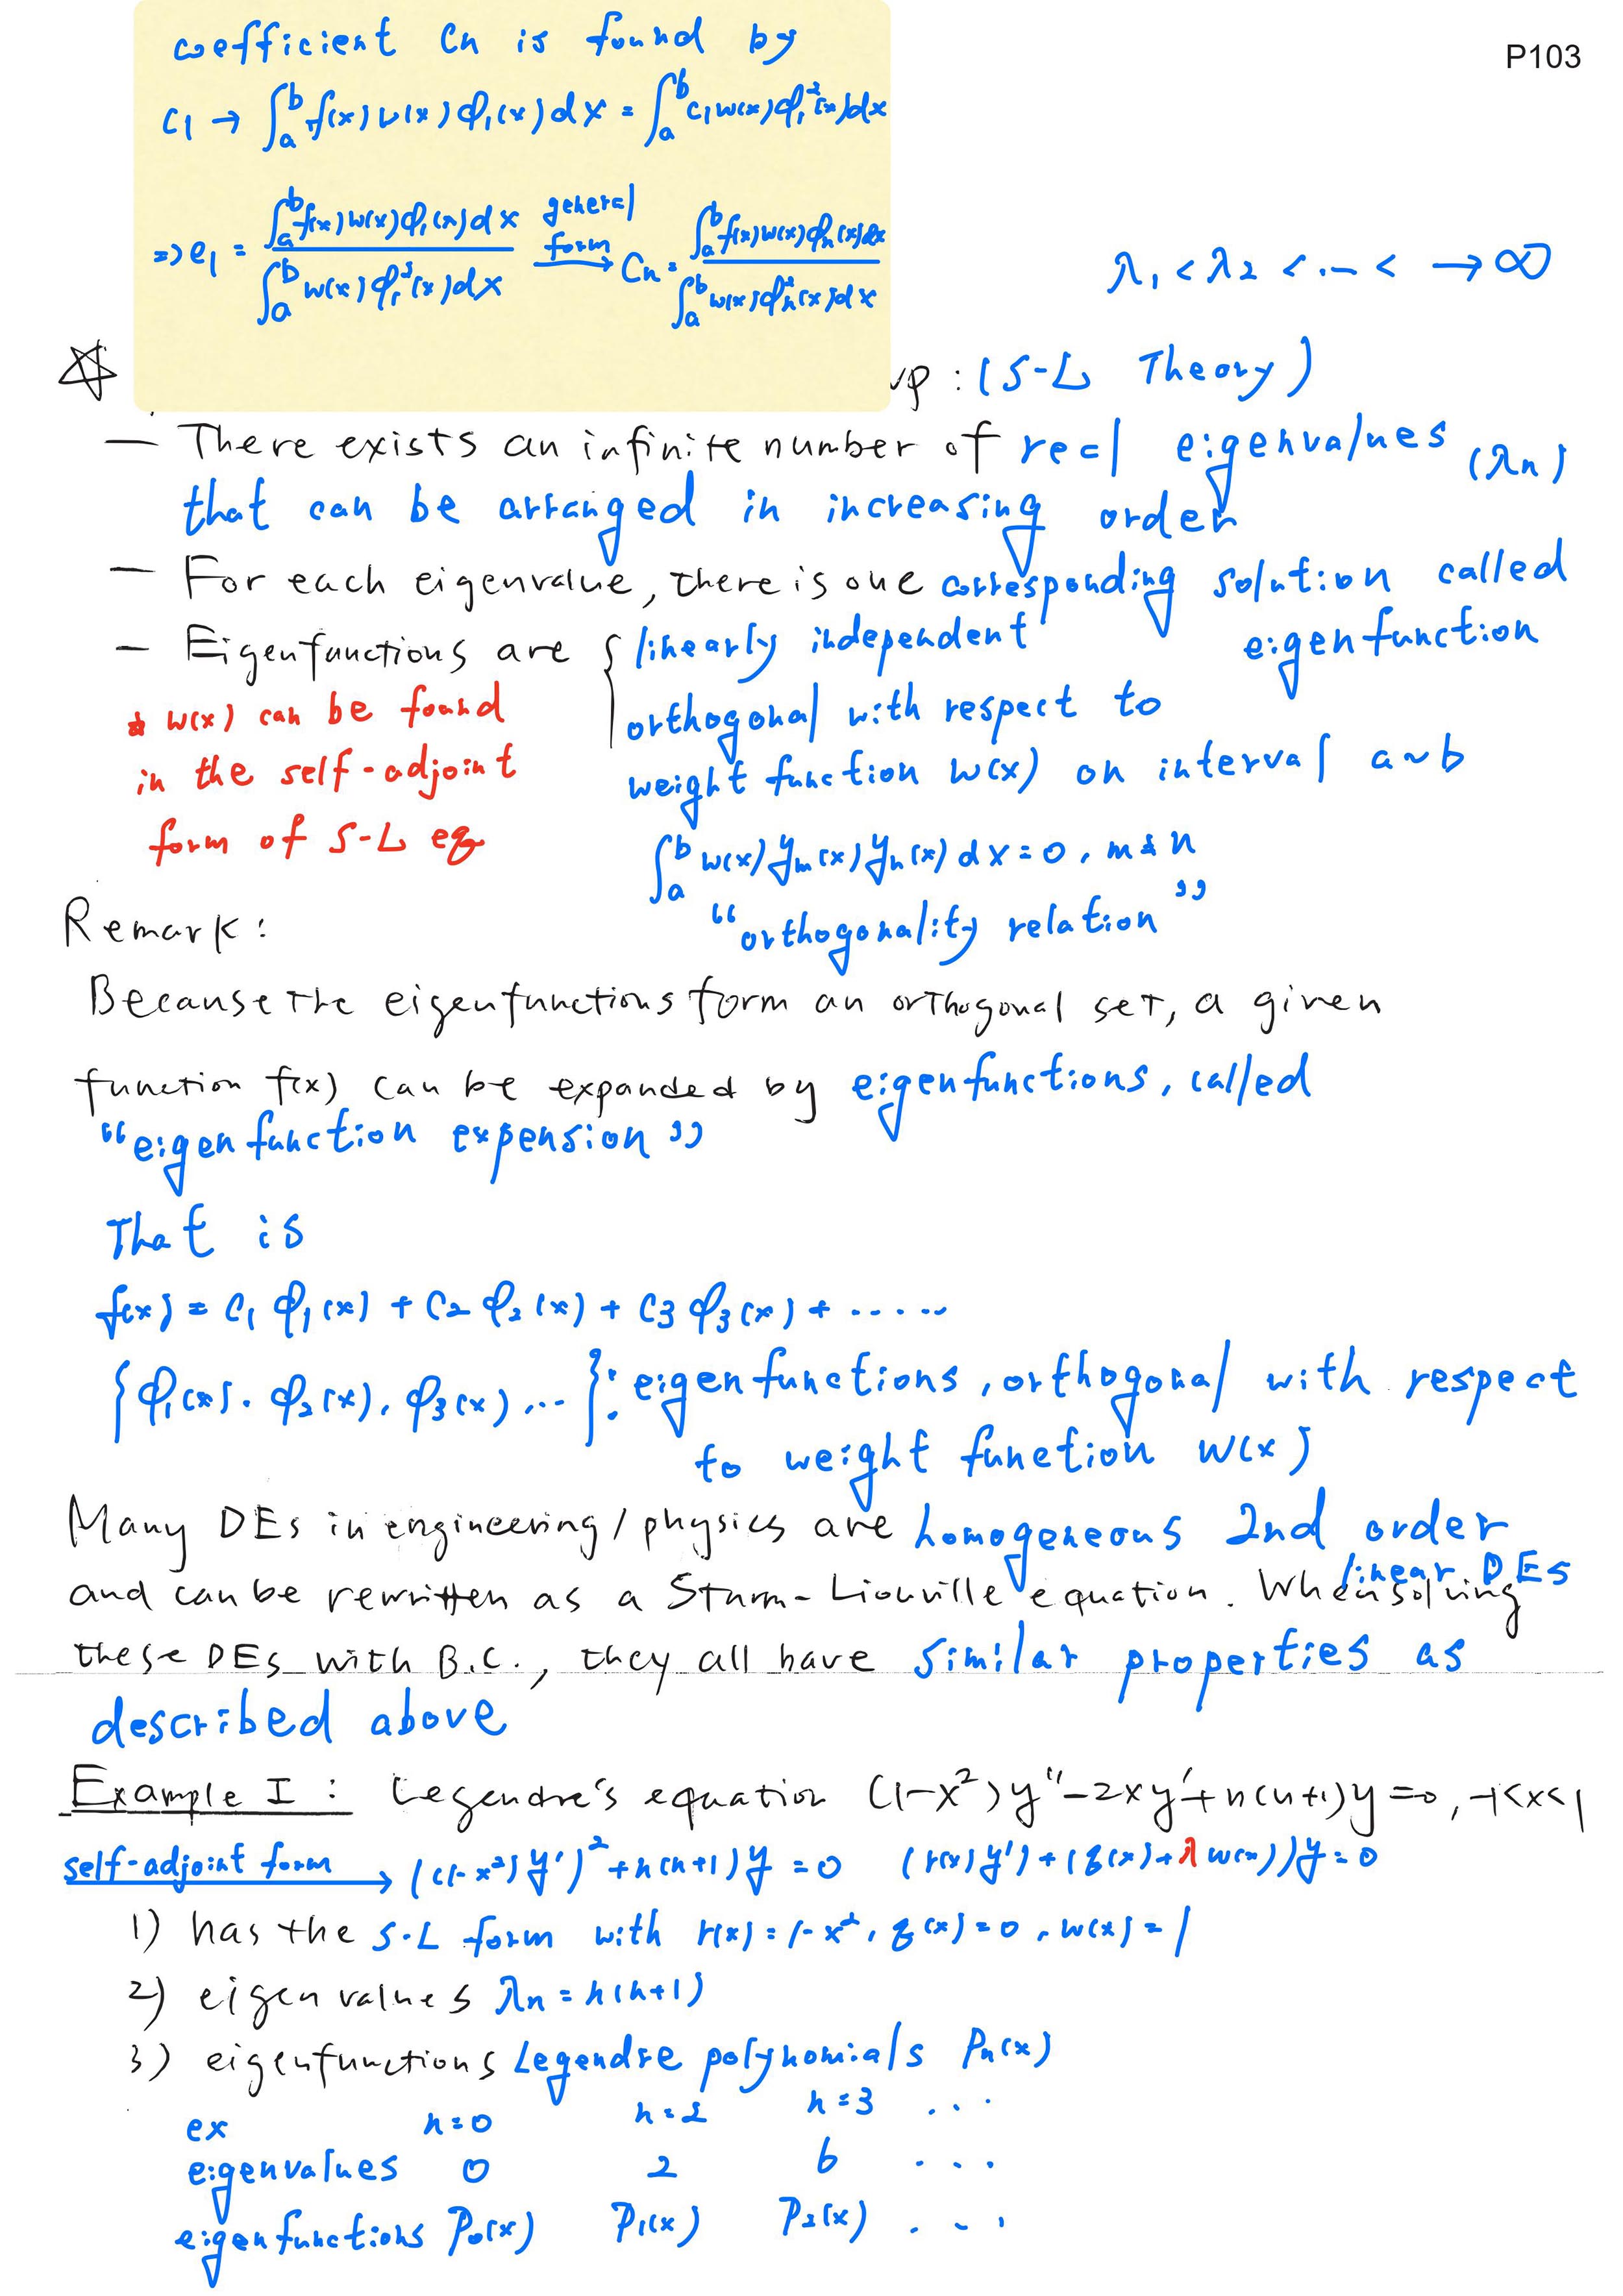 coefficient Cn is found by
P103
C1 → ∫_a^b f(x)w(x)φ1(x)dx = ∫_a^b C1w(x)φ1²(x)dx
⇒ e1 = ∫_a^b f(x)w(x)φ1(x)dx / ∫_a^b w(x)φ1²(x)dx general form → Cn = ∫_a^b f(x)w(x)φn(x)dx / ∫_a^b w(x)φn²(x)dx
λ1 < λ2 < ... < → ∞
☆ up : (S-L Theory)
— There exists an infinite number of real eigenvalues (λn)
that can be arranged in increasing order
— For each eigenvalue, there is one corresponding solution called
eigenfunction
— Eigenfunctions are { linearly independent
orthogonal with respect to
weight function w(x) on interval a~b
* w(x) can be found
in the self-adjoint
form of S-L eq
∫_a^b w(x)ym(x)yn(x)dx = 0, m≠n
"orthogonality relation"
Remark:
Because the eigenfunctions form an orthogonal set, a given
function f(x) can be expanded by eigenfunctions, called
"eigenfunction expension"
That is
f(x) = C1 φ1(x) + C2 φ2(x) + C3 φ3(x) + ......
{φ1(x), φ2(x), φ3(x), ...}: eigenfunctions, orthogonal with respect
to weight function w(x)
Many DEs in engineering/physics are homogeneous 2nd order
linear DEs
and can be rewritten as a Sturm-Liouville equation. When solving
these DEs with B.C., they all have similar properties as
described above
Example I : Legendre's equation (1-x²)y"-2xy'+n(n+1)y=0, -1<x<1
self-adjoint form → ((1-x²)y')²+n(n+1)y=0 (r(x)y')+(q(x)+λw(x))y=0
1) has the S-L form with r(x)=1-x², q(x)=0, w(x)=1
2) eigenvalues λn = n(n+1)
3) eigenfunctions Legendre polynomials Pn(x)
ex n=0 n=2 n=3 ...
eigenvalues 0 2 6 ...
eigenfunctions P0(x) P1(x) P2(x) ...